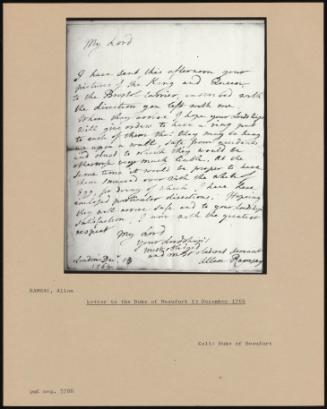 My Lord
I have sent this afternoon your
pictures of the King and Queen
to the Bristol Carrier, inscribed with
the direction you left with me
When they arrive I hope your Lordship
will give orders to have a ring put
to each of them that they may be hung
up upon a wall, safe from
and dust to which they would be
otherwise very much liable. At the
same time it would be proper to have
them over with the white of
Egg, for doing of which I have here
enclosed particular directions. Hoping
they will arrive safe and to your Lordship's
satisfaction I am with the greatest
respect
My Lord
Your Lordship's
most obliged
and most obedient servant
London Decr. 13
Allan Ramsay
RAMSAY, Allan
Letter to the Duke of Beaufort 13 December 1766
Coll: Duke of Beaufort
pmf neg. 5788